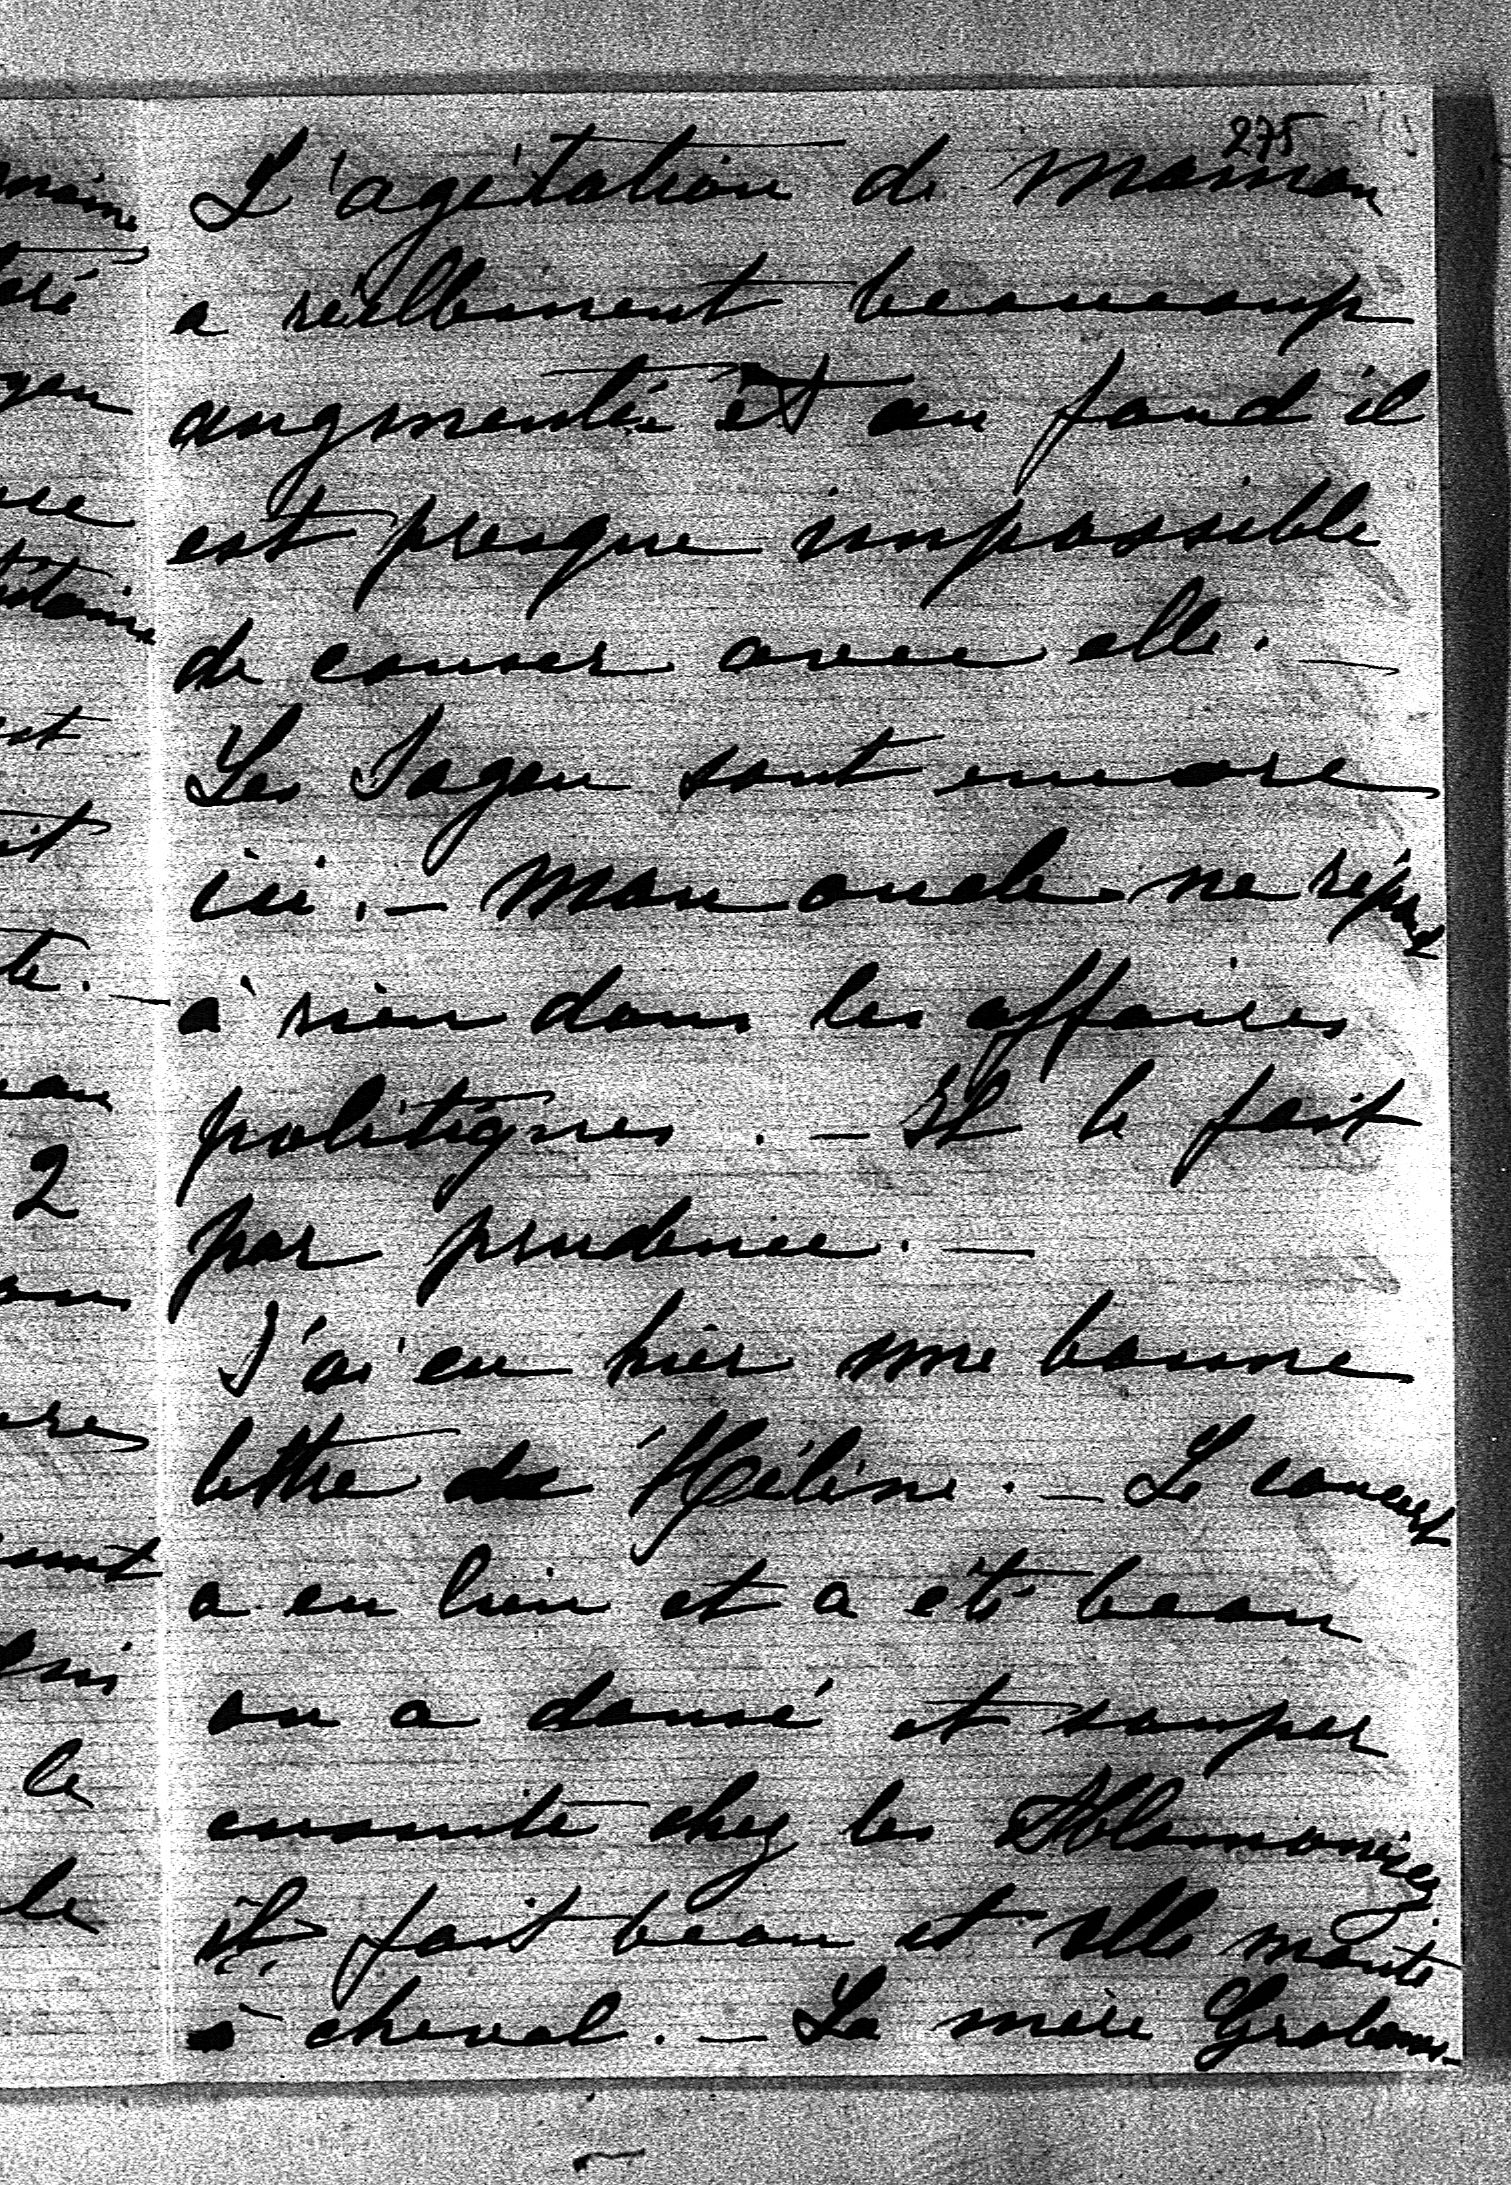 275
L'agitation de Maman
a réellement beaucoup
augmentée et au fond il
est presque impossible
de causer avec elle. —
Les Sagan sont encore
ici. — Mon oncle ne répond
à rien dans les affaires
politiques. — Il le fait
par prudence. —
J'ai eu hier une bonne
lettre de Hélène. — Le concert
a eu lieu et a été beau
on a dansé et souper
ensuite chez les
il fait beau et elle monte
à cheval. — La mère
2
le